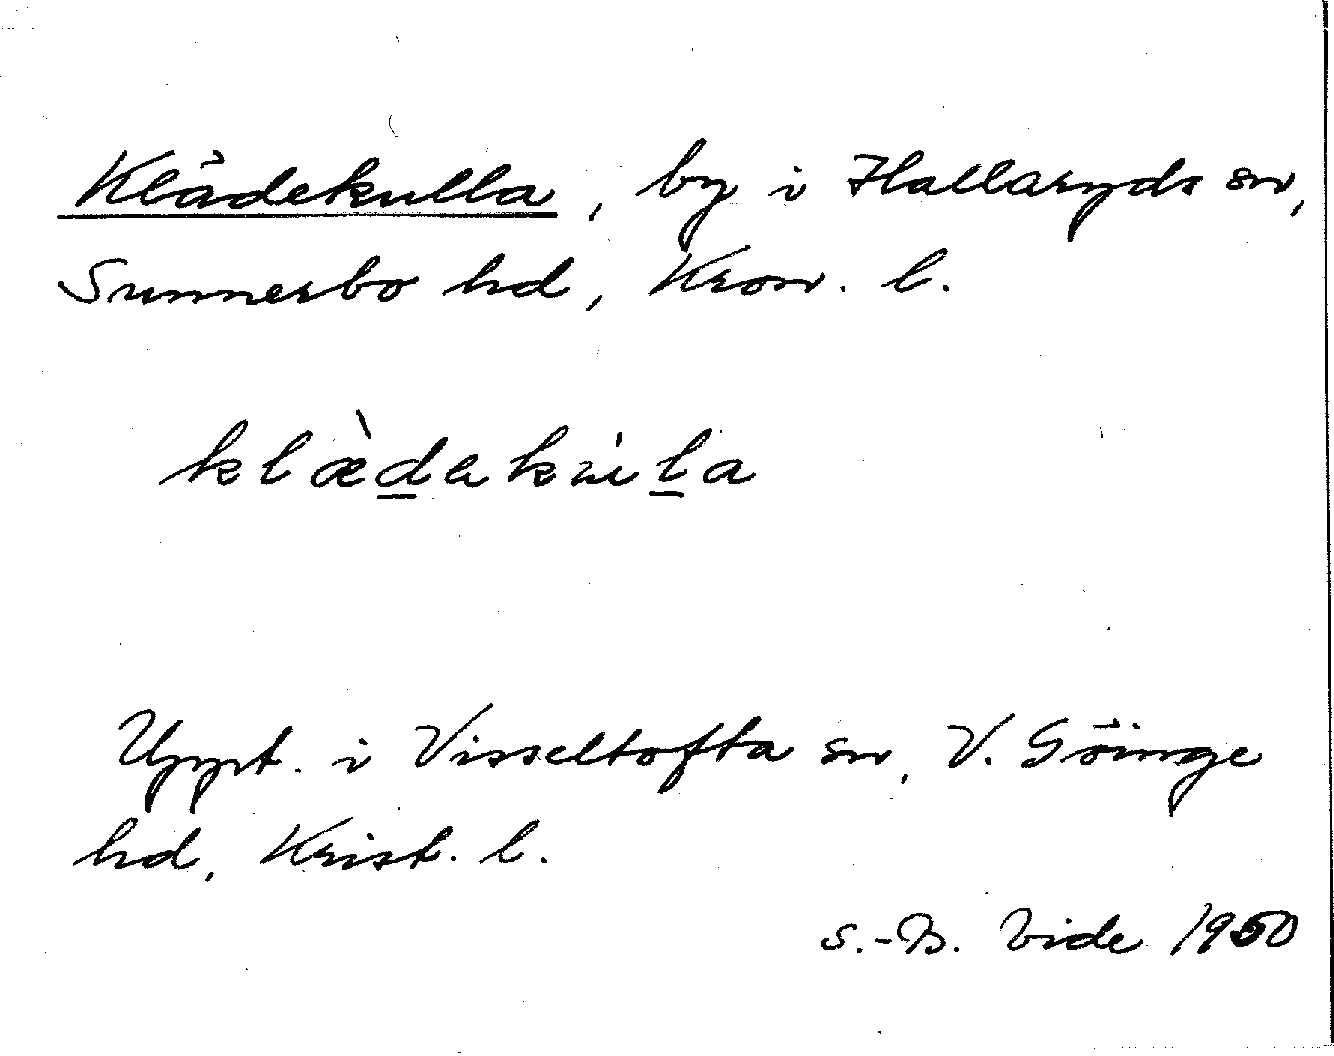 Klädekulla, by i Hallaryds sn,
Sunnerbo hd, Kron. l.
klæ̀dakúla
Uppt. i Visseltofta sn, V. Göinge
hd, Krist. l.
S.-B. Vide 1950